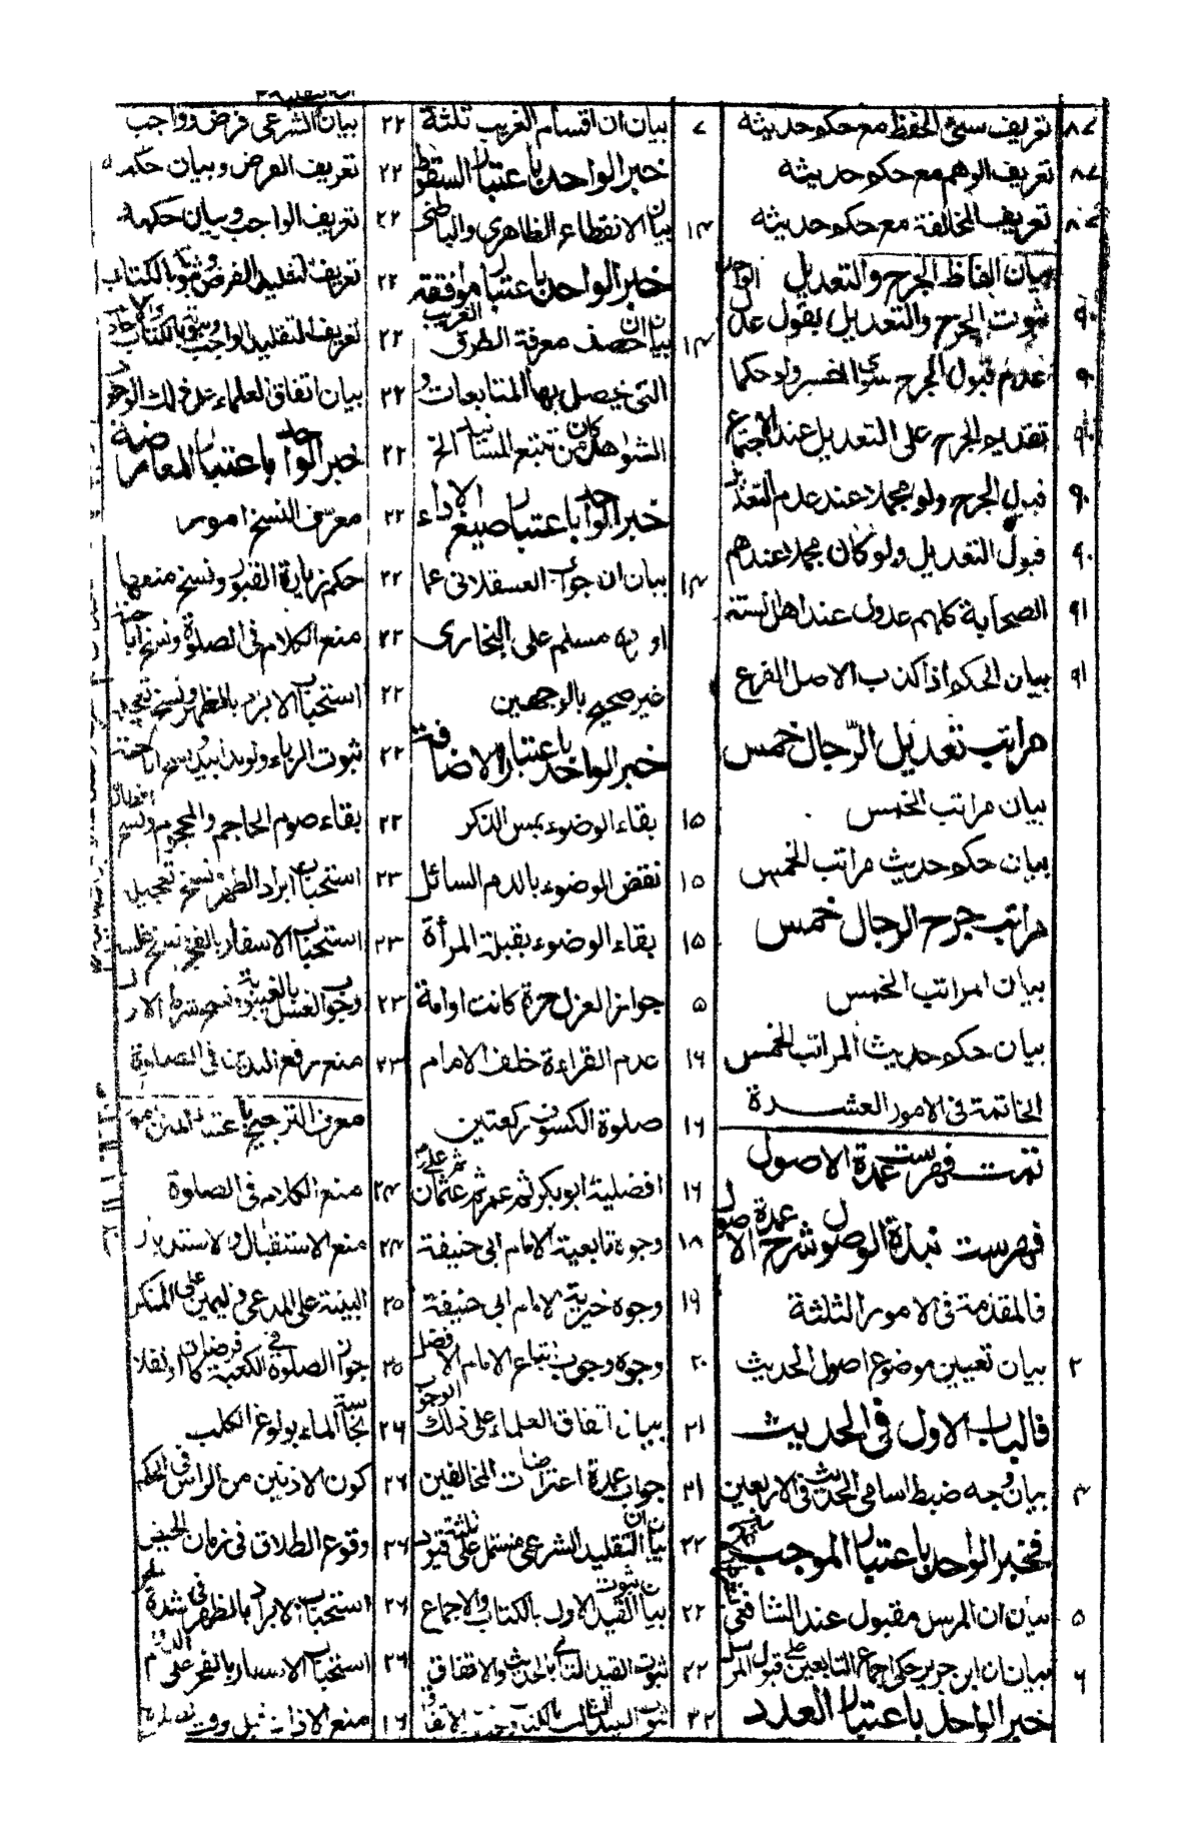 ٨٧ تعريف سيئ الحفظ مع حكم حديثه
٨٧ تعريف الوهم مع حكم حديثه
٨٧ تعريف المخالفة مع حكم حديثه
بيان الفاظ الجرح والتعديل
٩٠ ثبوت الجرح والتعديل بقول عدل الواحد
٩٠ عدم قبول الجرح سوى المفسر ولو حكما
٩٠ تقديم الجرح على التعديل عند الاجتماع
٩٠ قبول الجرح ولو مجملا عند عدم التعديل
٩٠ قبول التعديل ولو كان مجملا عندهم
٩١ الصحابة كلهم عدول عند اهل السنة
٩١ بيان الحكم اذا كذب الاصل الفرع
مراتب تعديل الرّجال خمس
بيان مراتب الخمس
بيان حكم حديث مراتب الخمس
مراتب جرح الرجال خمس
بيان امراتب الخمس
بيان حكم حديث المراتب الخمس
الخاتمة فى الامور العشرة
تمت فهرست عمدة الاصول
فهرست نبذة الوصول شرح عمدة الاصول
فالمقدمة فى الامور الثلثة
٢ بيان تعيين موضوع اصول الحديث
فالباب الاول فى الحديث
٣ بيان وجه ضبط اسامى الحديث فى الاربعين
فخبر الواحد باعتبار الموجب
٥ بيان ان المرسل مقبول عند الشافعى
٦ بيان ان ابن جرير حكى اجماع التابعين على قبول المرسل
خبر الواحد باعتبار العدد
٧ بيان ان اقسام الغريب ثلثة
خبر الواحد باعتبار السقوط
١٣ بيان الانقطاع الظاهرى والباطنى
خبر الواحد باعتبار موافقته الغريب
١٣ بيان ان معرفة الطرق
التى يحصل بها المتابعات و
الشواهد كان من تتبع المسانيد الخ
خبر الواحد باعتبار صيغ الاداء
١٣ بيان ان جواب العسقلانى عما
اورده مسلم على البخارى
غير صحيح بالوجهين
خبر الواحد باعتبار الاضافة
١٥ بقاء الوضوء بمس الذكر
١٥ نقض الوضوء بالدم السائل
١٥ بقاء الوضوء بقبلة المرأة
٥ جواز العزل حرة كانت او امة
١٦ عدم القراءة خلف الامام
١٦ صلوة الكسوف ركعتين
١٦ افضلية ابو بكر ثم عمر ثم عثمان ثم على
١٨ وجوه تابعية الامام ابى حنيفة
١٩ وجوه خيرية الامام ابى حنيفة
٢٠ وجوه وجوب اتباع الامام الافضل
٢١ بيان اتفاق العلماء على ذلك الوجوب
٢١ جواب عمدة اعتراضات المخالفين
٢٢ بيان ان التقليد الشرعى مشتمل على قيود ثلثة
٢٢ بيان ثبوت القيد الاول بالكتاب والاجماع
٢٢ ثبوت القيد الثانى بالحديث والاتفاق
٢٢ ثبوت القيد الثالث
٢٢ بيان الشرعى فرض وواجب
٢٢ تعريف الفرض وبيان حكمه
٢٢ تعريف الواجب وبيان حكمه
٢٢ تعريف التقليد الفرض وثبوته بالكتاب
٢٢ تعريف التقليد الواجب وثبوته بالكتاب
٢٢ بيان اتفاق العلماء على ذلك الوجوب
٢٢ خبر الواحد باعتبار المعارضة
٢٢ معرّف النسخ امور
٢٢ حكم زيارة القبور ونسخ منعها
٢٢ منع الكلام فى الصلوة ونسخ اباحته
٢٢ استحباب الابراد بالظهر ونسخ
٢٢ ثبوت الرباء
٢٢ بقاء صوم الحاجم والمحجوم ونسخ
٢٣ استحباب ابراد الظهر ونسخ تعجيل
٢٣ استحباب الاسفار بالفجر ونسخ
٢٣ وجوب الغسل بالغيبوبة
٢٣ منع رفع اليدين فى الصلوة
معرف الترجيح باعتبار المتن
٢٤ منع الكلام فى الصلوة
٢٤ منع الاستقبال والاستدبار
٢٥ البينة على المدعى واليمين على المنكر
٢٥ جواز الصلوة فى الكعبة فرضا كان او نفلا
٢٦ نجاسة الماء بولوغ الكلب
٢٦ كون الاذنين من الراس فى الحكم
٢٦ وقوع الطلاق فى زمان الحيض
٢٦ استحباب الابراد بالظهر فى شدة الحر
٢٦ استحباب الاسفار بالفجر على
١٦ منع الاذان قبل وقت